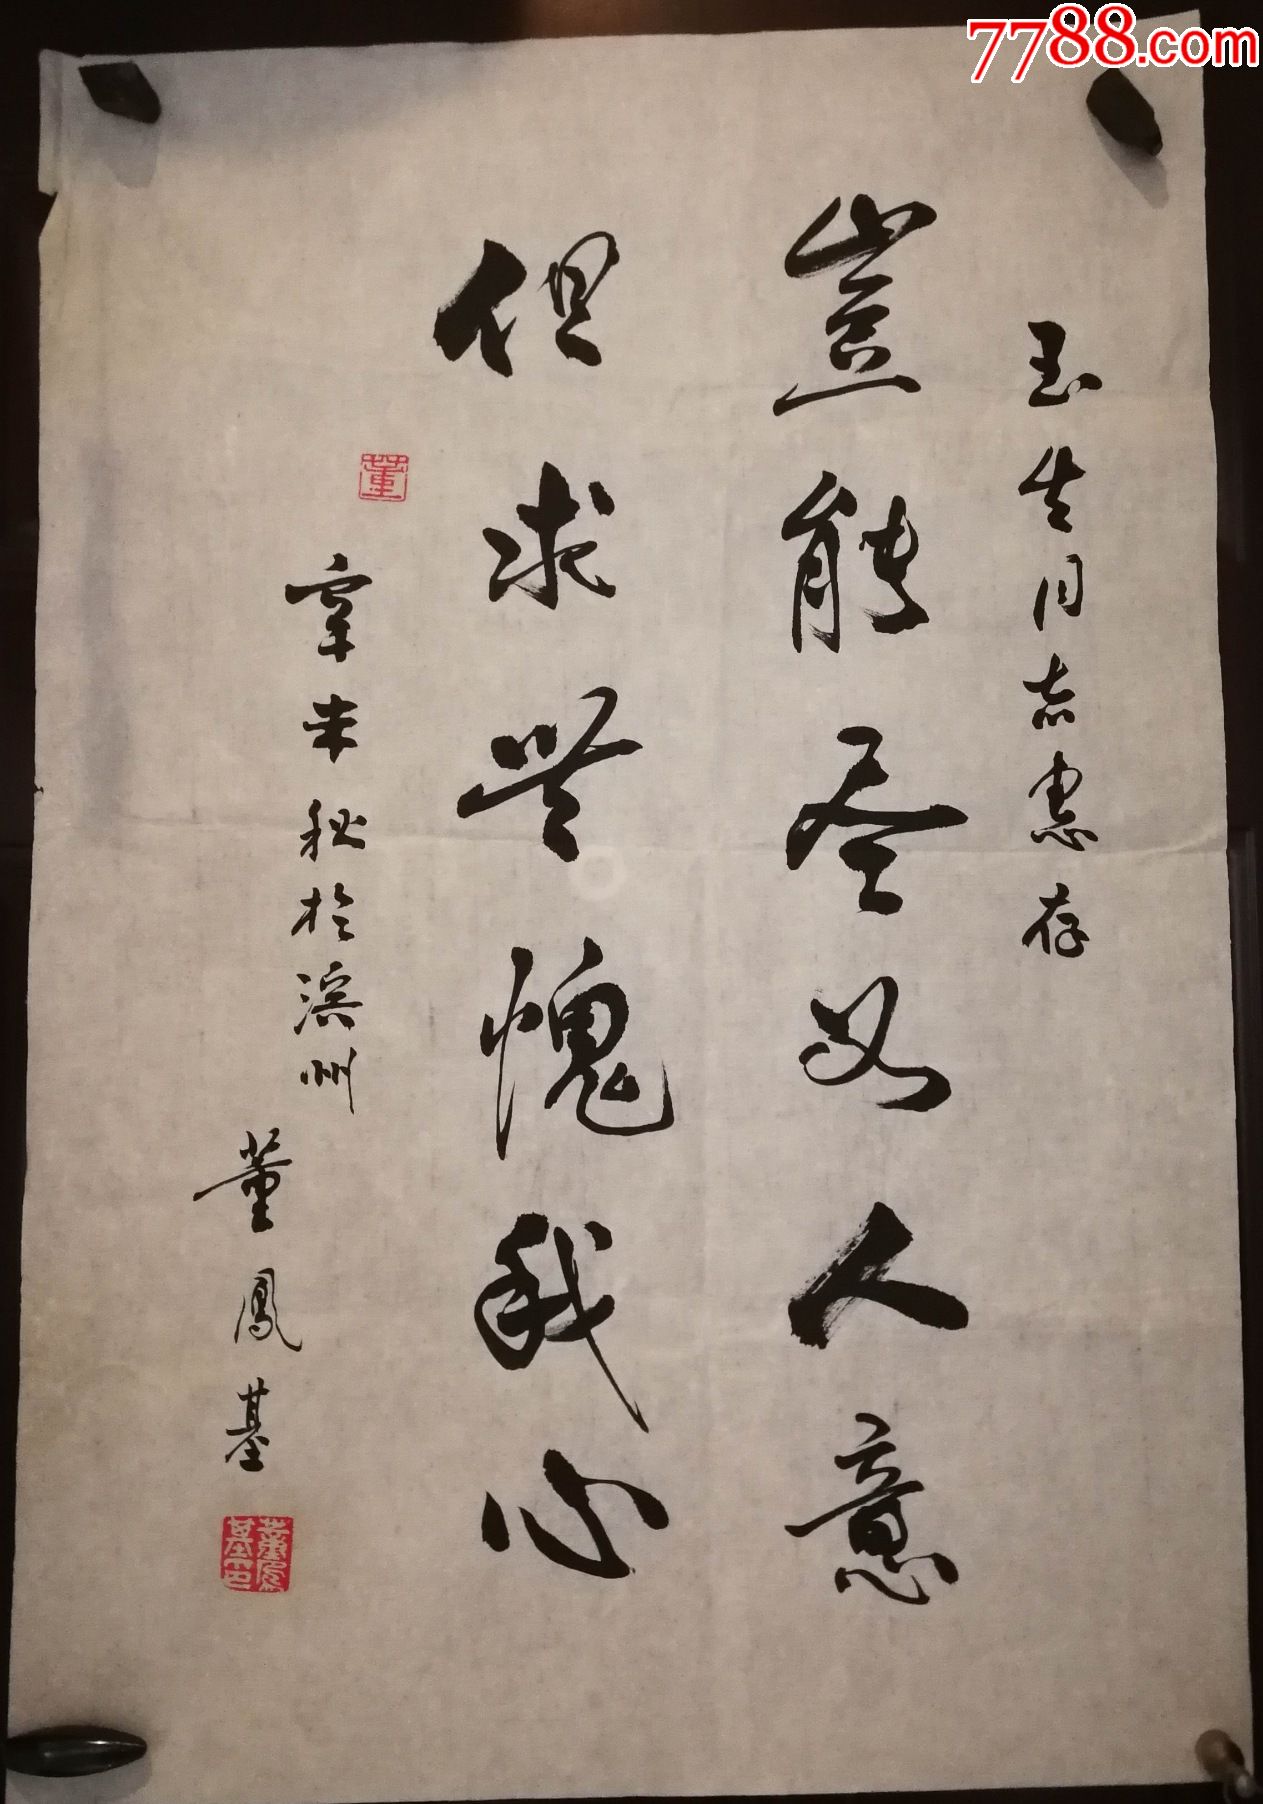 7788.com
玉生同志惠存
豈能尽如人意
但求無愧我心
董
辛未秋於滨州
董鳳基
董鳳基印